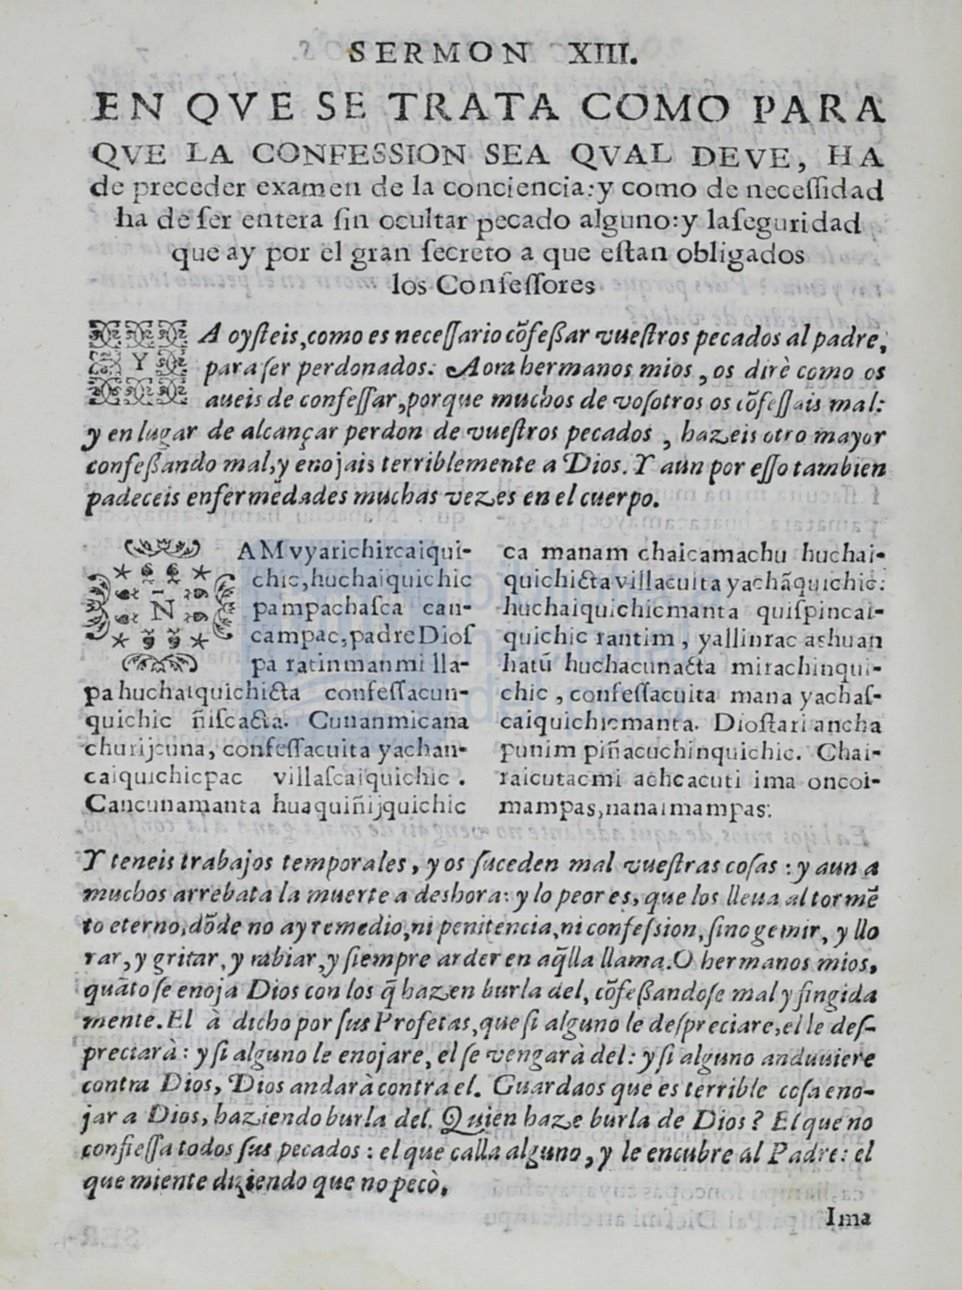 SERMON XIII.
EN QVE SE TRATA COMO PARA
QVE LA CONFESSION SEA QVAL DEVE, HA
de preceder examen de la conciencia: y como de neceſſidad
ha de ſer entera ſin ocultar pecado alguno: y laſeguridad
que ay por el gran ſecreto a que eſtan obligados
los Confeſſores
YA oyſteis, como es neceſſario cõfeſſar vueſtros pecados al padre,
para ſer perdonados: Aora hermanos mios, os dirè como os
aueis de confeſſar, porque muchos de voſotros os cõfeſſais mal:
y en lugar de alcançar perdon de vueſtros pecados, hazeis otro mayor
confeſſando mal, y enojais terriblemente a Dios. Y aun por eſſo tambien
padeceis enfermedades muchas vezes en el cuerpo.
NAM vyarichircaiqui-
chic, huchaiquichic
pampachaſca can-
campac, padre Dioſ
pa rantinmanmi lla-
pa huchaiquichicta confeſſacun-
quichic ñiſcacta. Cunanmicana
churijcuna, confeſſacuita yachan-
caiquichicpac villaſcaiquichic.
Cancunamanta huaquiñijquichic
ca manam chaicamachu huchai-
quichicta villacuita yachãquichic:
huchaiquichicmanta quiſpincai-
quichic rantim, yallinrac ashuan
hatũ huchacunacta mirachinqui-
chic, confeſſacuita mana yachaſ-
caiquichicmanta. Dioſtari ancha
punim piñacuchinquichic. Chai-
raicutacmi achcacuti ima oncoi-
mampas, nanaimampas:
Y teneis trabajos temporales, y os ſuceden mal vueſtras coſas: y aun a
muchos arrebata la muerte a deshora: y lo peor es, que los lleua al tormẽ
to eterno, dõde no ay remedio, ni penitencia, ni confeſsion, ſino gemir, y llo
rar, y gritar, y rabiar, y ſiempre arder en aq̃lla llama. O hermanos mios,
quãto ſe enoja Dios con los q̃ hazen burla del, cõfeſſandoſe mal y fingida
mente. El à dicho por ſus Profetas, que ſi alguno le deſpreciare, el le deſ-
preciarà: y ſi alguno le enojare, el ſe vengarà del: y ſi alguno anduuiere
contra Dios, Dios andarà contra el. Guardaos que es terrible coſa eno-
jar a Dios, haziendo burla del. Quien haze burla de Dios? El que no
confieſſa todos ſus pecados: el que calla alguno, y le encubre al Padre: el
que miente diziendo que no pecò,
Ima